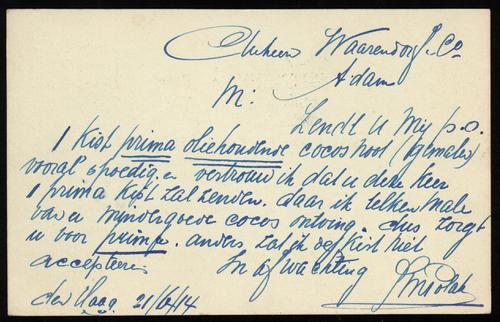 den Heeren Waarendorf & Co
Adam
M:
Zendt U Mij p.o.
1 Kist prima oliehoudende cocosnoot (gemalen)
vooral spoedig, en vertrouw ik dat U deze keer
1 prima Kist zal zenden. daar ik telken male
van U mindergoede cocos ontving. dus zorgt
U voor prima. anders zal ik de Kist niet
accepteeren
In afwachting
den Haag 21/6/14